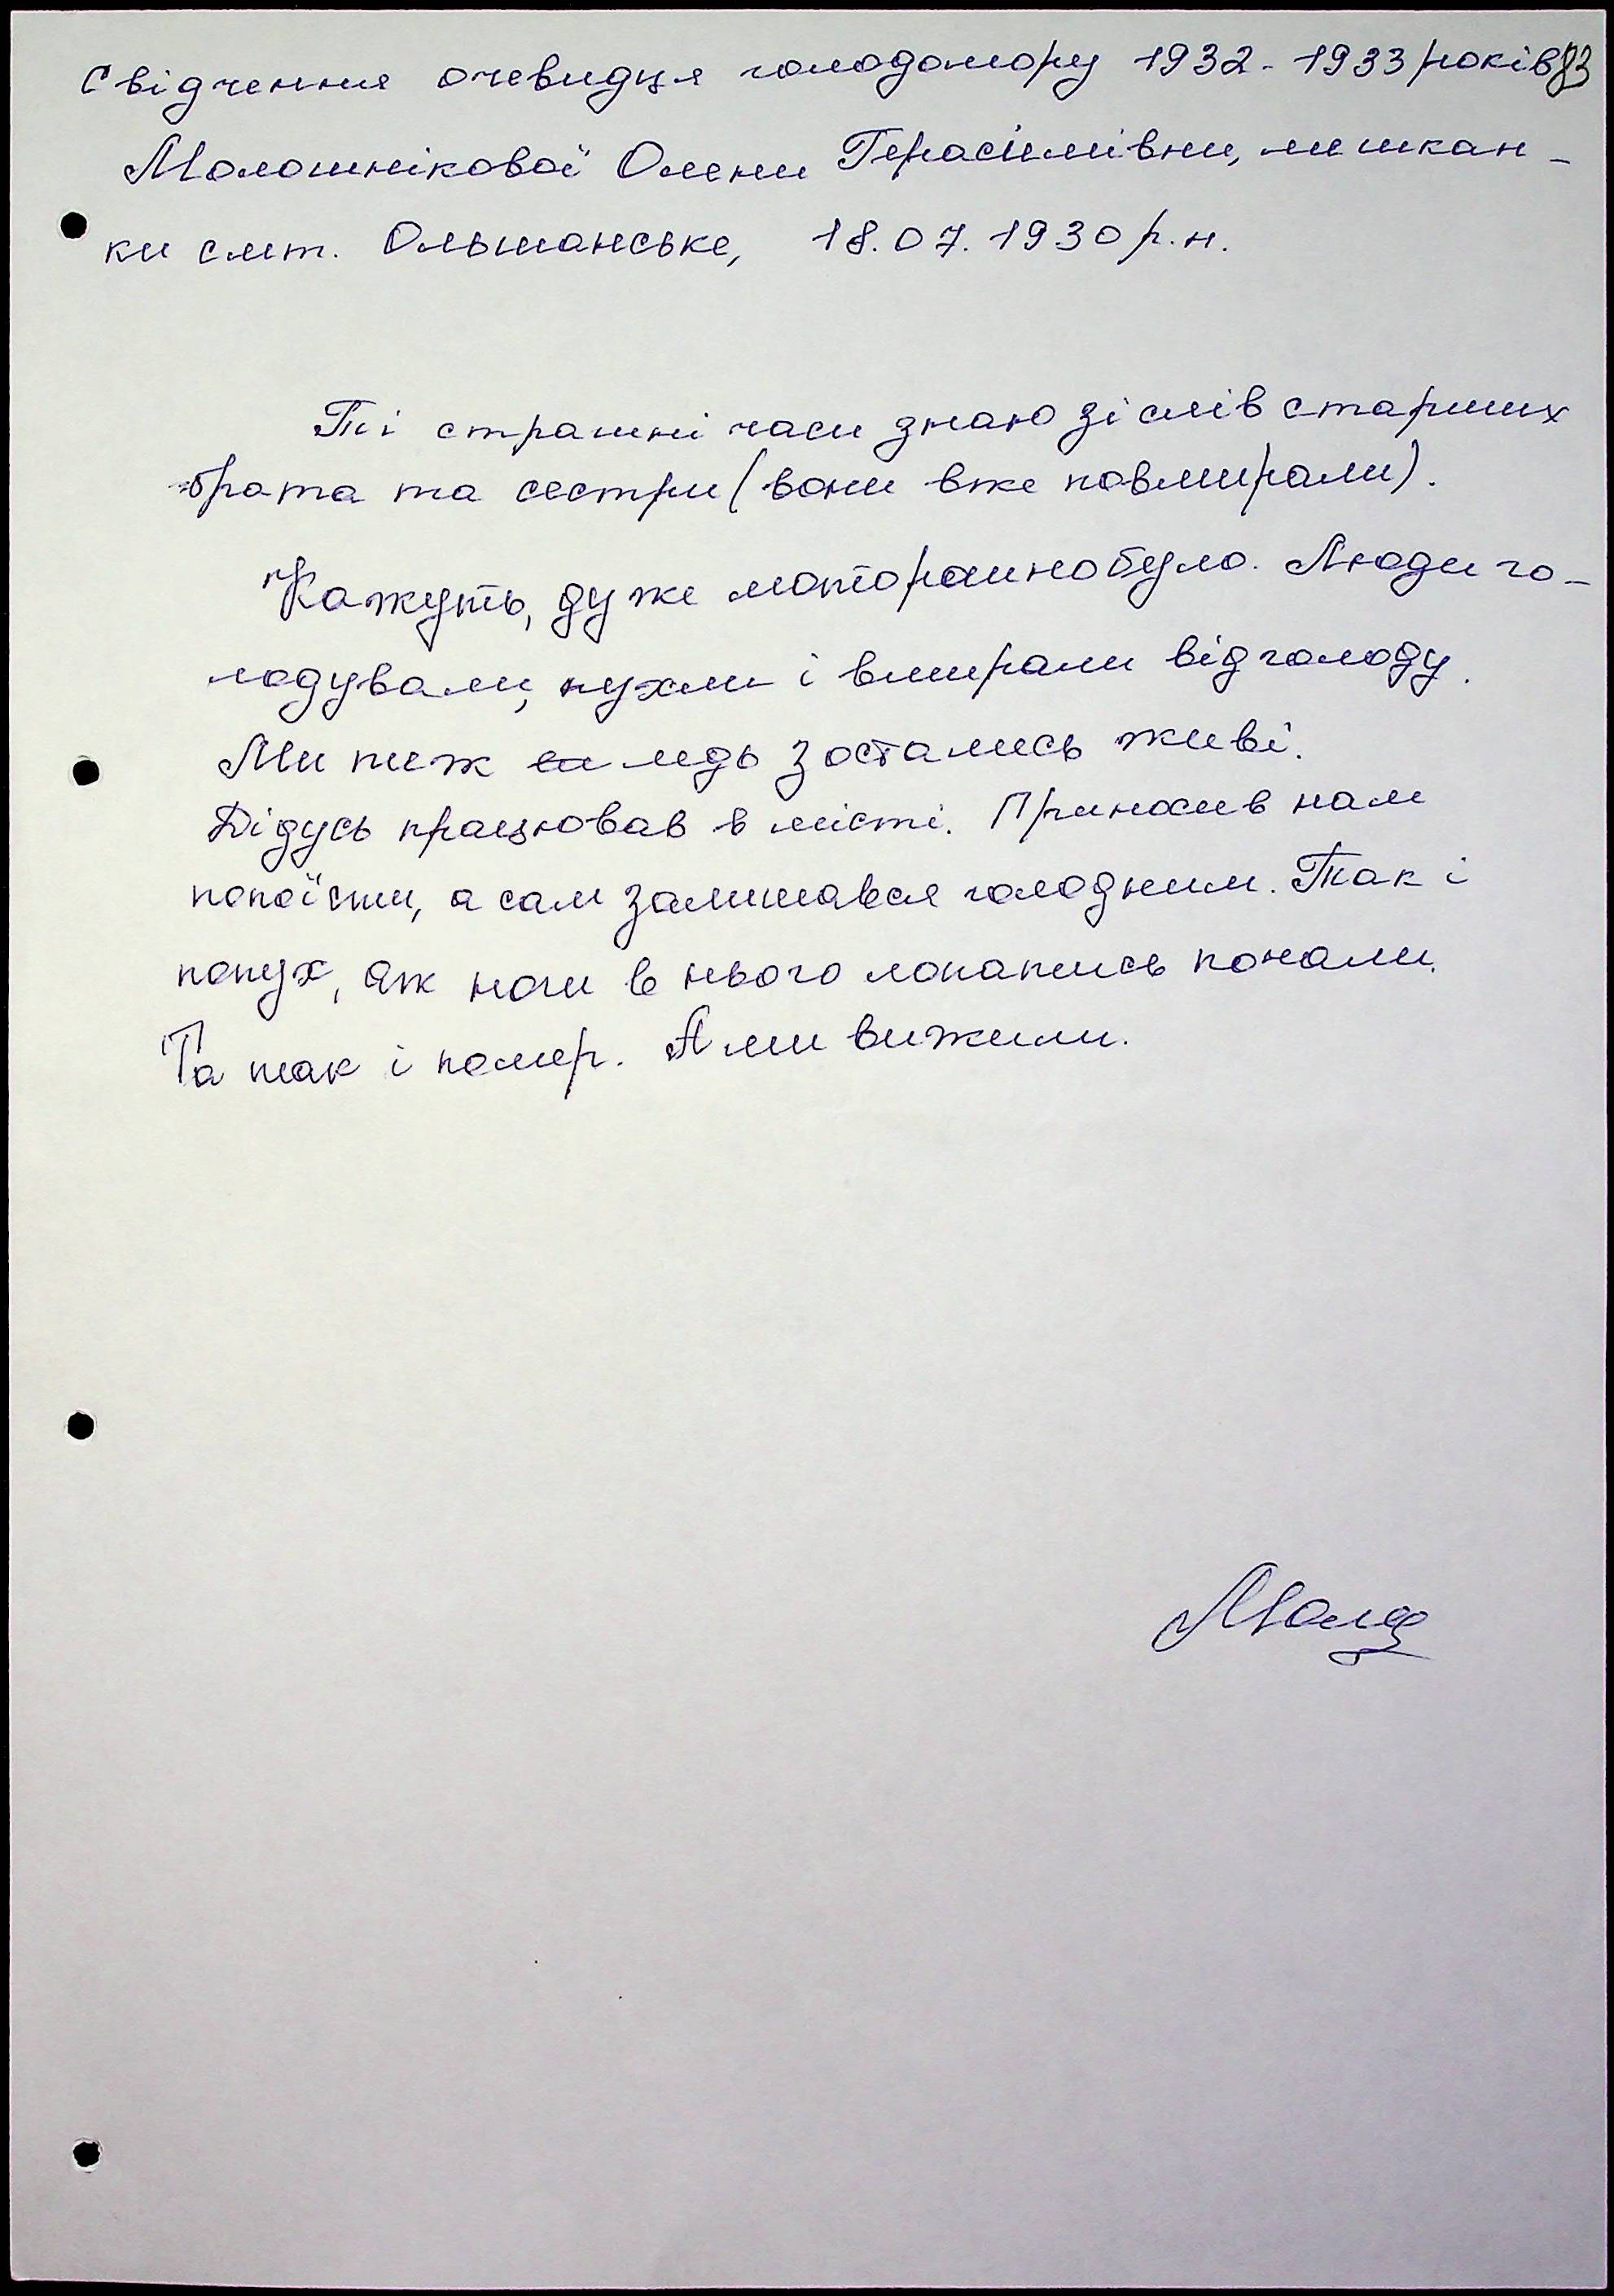 Свідчення очевидця голодомору 1932-1933 років 83
Молошнікової Олени Герасимівни, мешкан-
ки смт. Ольшанське, 18.07.1930 р.н.
Ті страшні часи знаю зі слів старших
брата та сестри (вони вже повмирали).
Кажуть, дуже моторошно було. Люди го-
лодували, пухли і вмирали від голоду.
Ми теж ледь зостались живі.
Дідусь працював в місті. Приносив нам
попоїсти, а сам залишався голодним. Так і
попух, аж ноги в нього лопатись почали.
Та так і помер. А ми вижили.